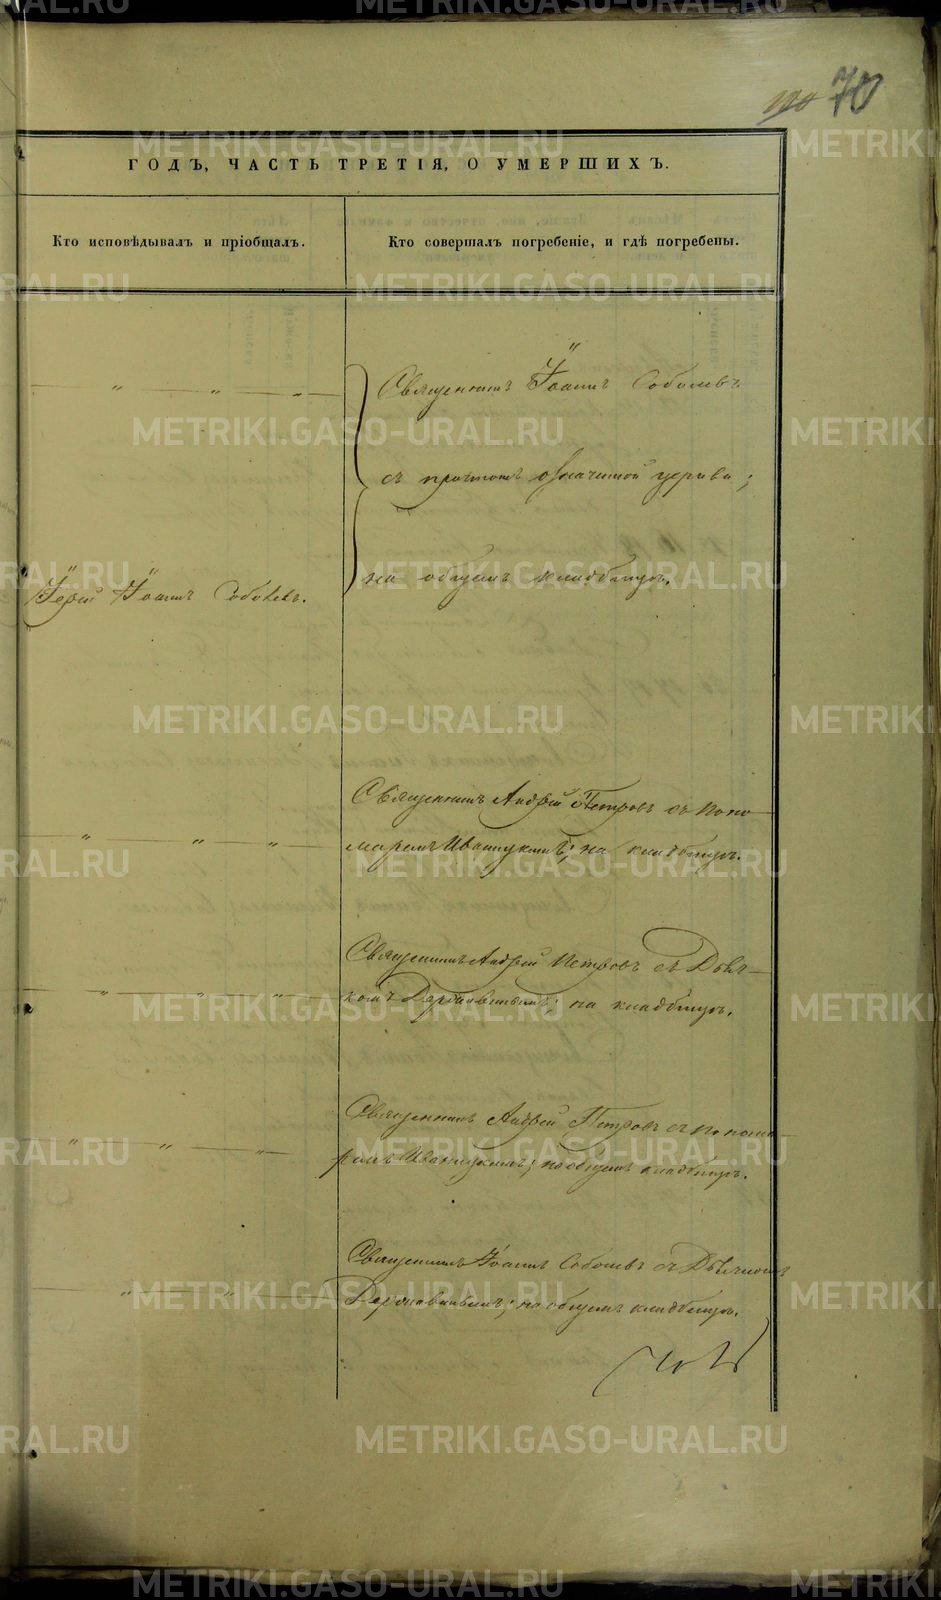 70
ГОДЪ, ЧАСТЬ ТРЕТІЯ, О УМЕРШИХЪ.
Кто исповѣдывалъ и пріобщалъ.
Кто совершалъ погребеніе, и гдѣ погребены.
Священникъ Іоаннъ Соболевъ
съ причтомъ означенной церкви;
на общемъ кладбищѣ.
Іерей Іоаннъ Соболевъ.
Священникъ Андрей Петровъ съ поно-
маремъ Иваницкимъ; на кладбищѣ.
Священникъ Андрей Петровъ съ Дьяч-
комъ; на кладбищѣ.
Священникъ Андрей Петровъ съ понома-
ремъ Иваницкимъ; на общемъ кладбищѣ.
Священникъ Іоаннъ Соболевъ съ Дьячкомъ
на общемъ кладбищѣ.
METRIKI.GASO-URAL.RU